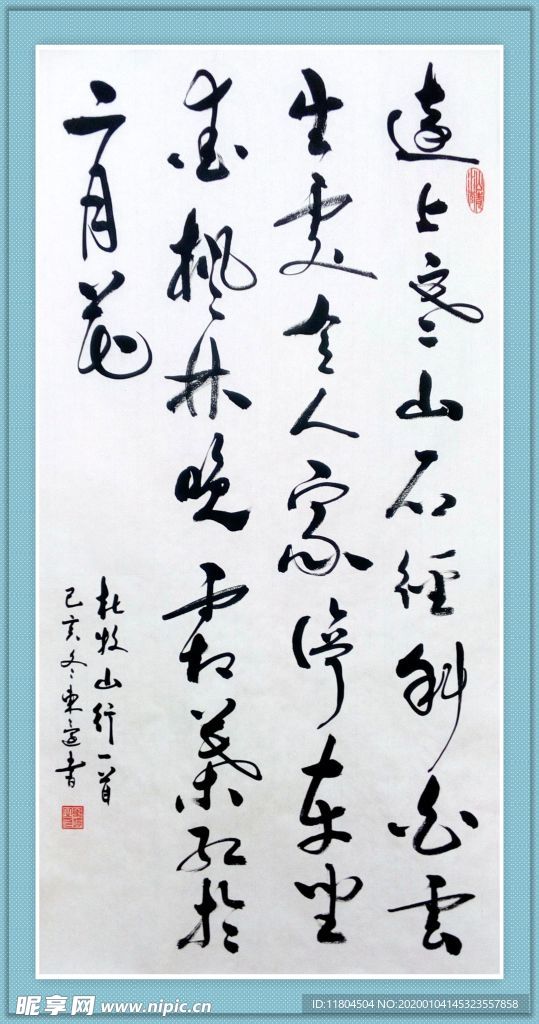 遠上寒山石徑斜白雲
生處有人家停車坐
愛楓林晚霜葉紅於
二月花
杜牧山行一首
己亥冬東書
昵享网 www.nipic.cn
ID:11804504 NO:20200104145323557858